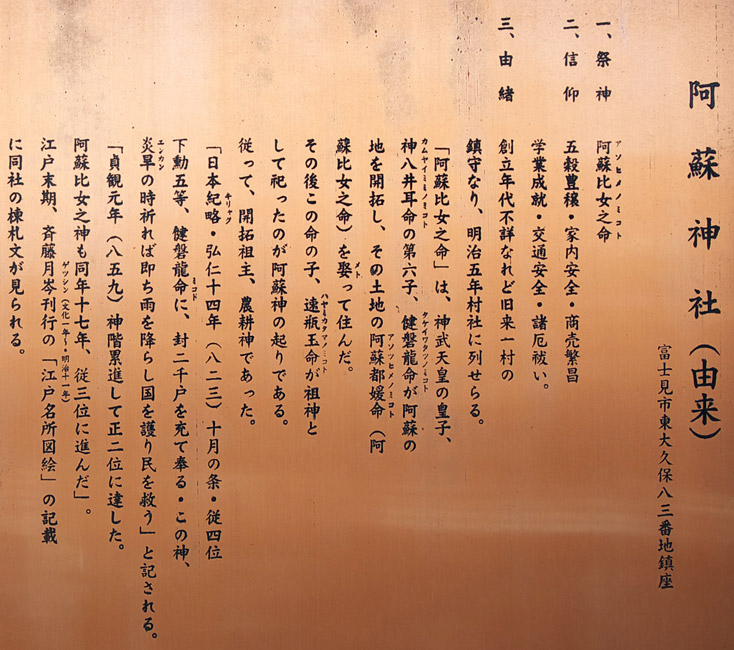 阿蘇神社(由来)
富士見市東大久保八三番地鎮座
一、祭神 阿蘇比女之命
アソヒメノミコト
二、信仰 五穀豊穣・家内安全・商売繁昌
学業成就・交通安全・諸厄祓い。
三、由緒 創立年代不詳なれど旧来一村の
鎮守なり、明治五年村社に列せらる。
「阿蘇比女之命」は、神武天皇の皇子、
カムヤイミミノミコト
神八井耳命の第六子、健磐龍命が阿蘇の
タケイワタツノミコト
地を開拓し、その土地の阿蘇都媛命(阿
アソツヒメノミコト
蘇比女之命)を娶って住んだ。
メト
その後この命の子、速瓶玉命が祖神と
ハヤミカタマノミコト
して祀ったのが阿蘇神の起りである。
従って、開拓祖主、農耕神であった。
「日本紀略・弘仁十四年(八二三)十月の条・従四位
キリャク
下勳五等、健磐龍命に、封二千戸を充て奉る・この神、
ミコト
炎旱の時祈れば即ち雨を降らし国を護り民を救う」と記される。
エンカン
「貞観元年(八五九)神階累進して正二位に達した。
阿蘇比女之神も同年十七年、従三位に進んだ」。
江戸末期、斉藤月岑刊行の「江戸名所図絵」の記載
ゲッシン(文化一年〜明治十一年)
に同社の棟札文が見られる。